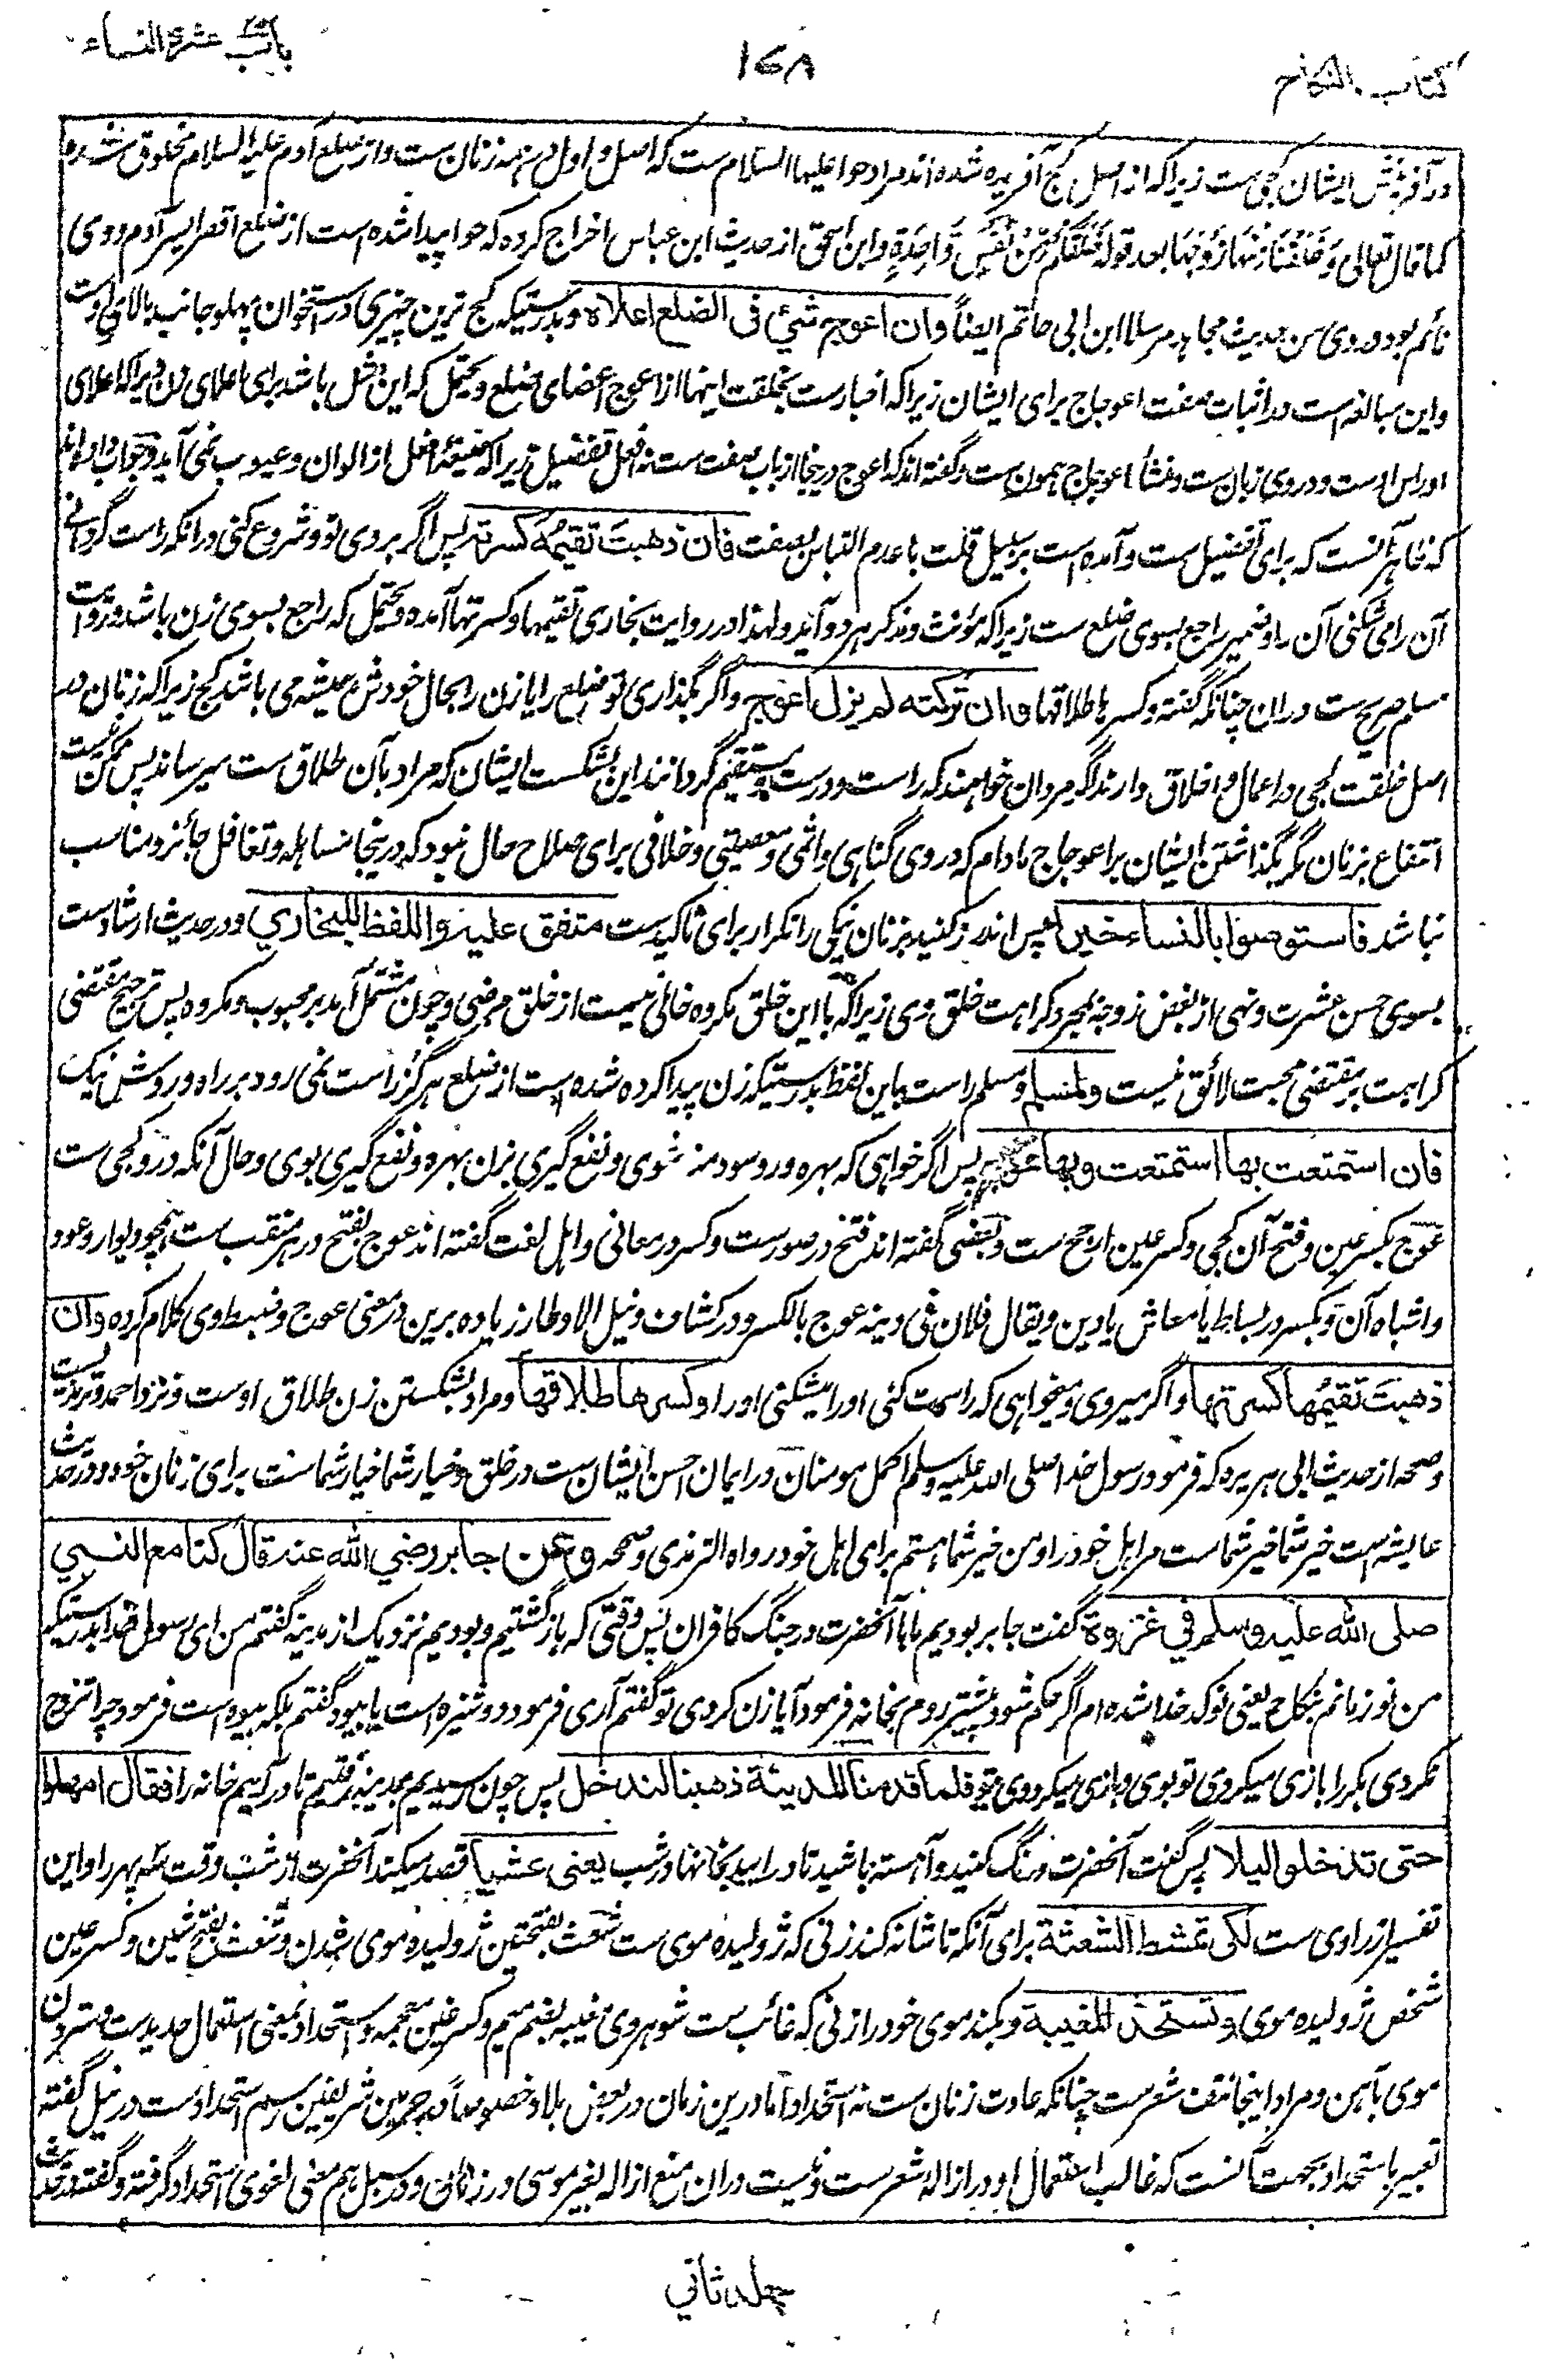 کتاب النکاح
۱۶۸
باب عشرة النساء
در آفرینش ایشان کجی ست زیراکه از اصل کج آفریده شده اند مراد حوا علیها السلام ست که اصل و اول همه زنان ست و از ضلع آدم علیه السلام مخلوق شده
کما قال تعالی وَخَلَقْنَا مِنْهَا زَوْجَهَا بعد قوله خَلَقَكُمْ مِنْ نَفْسٍ وَاحِدَةٍ و ابن اسحق از حدیث ابن عباس اخراج کرده که حوا پیدا شده است از ضلع اقصر ایسر آدم و وی
نائم بود و روی من حدیث مجاهد مرسلا ابن ابی حاتم ایضاً وان اعوج شیٔ فی الضلع اعلاه و بدرستیکه کج ترین چیزی در استخوان پهلو جانب بالای وست
و این مبالغه است در اثبات صفت اعوجاج برای ایشان زیراکه اخبارست بخلقت اینها از اعوج اعضای ضلع و یحتمل که این مثل باشد برای اعلای زن زیراکه اعلای
او راس اوست و در وی زبان ست و منشأ اعوجاج همون ست و گفته اند که اعوج درینجا از باب صفت ست نه افعل تفضیل زیراکه صیغهٔ افعل از الوان و عیوب نمی آید و جواب داده اند
که ظاهر آنست که برای تفضیل ست و آمده است بر سبیل قلت با عدم التباس بصفت فان ذهبتَ تقیمُه کسرته پس اگر بروی تو و شروع کنی در انکه راست گردانی
آن را می شکنی آن را و ضمیر راجع بسوی ضلع ست زیراکه مؤنث و مذکر هر دو آید و لهذا در روایت بخاری تقیمها و کسرتها آمده و یحتمل که راجع بسوی زن باشد و روایت
مسلم صریح ست دران چنانکه گفته و کسرها طلاقها وان ترکته لم یزل اعوج و اگر بگذاری تو ضلع را یا زن را بحال خودش همیشه می باشد کج زیراکه زنان در
اصل خلقت کجی در اعمال و اخلاق دارند اگر مردان خواهند که راست و درست و مستقیم گردانند این بشکست ایشان که مراد بآن طلاق ست میرساند پس ممکن نیست
انتفاع بزنان مگر بگذاشتن ایشان بر اعوجاج مادام که در وی گناهی و اثمی و معصیتی و خلافی برای صلاح حال نبود که درینجا مساهله و تغافل جائز و مناسب
نباشد فاستوصوا بالنساء خیرا پس اندرز کنید بزنان نیکی را تکرار برای تاکیدست متفق علیه واللفظ للبخاری و در حدیث ارشادست
بسوی حسن عشرت و نهی از بغض زوجه بمجرد کراهت خلق وی زیراکه با این خلق مکروه خالی نیست از خلق مرضی و چون مشتمل آمد بر محبوب و مکروه پس ترجیح مقتضی
کراهت بر مقتضی محبت لائق نیست ولمسلم و مسلم راست باین لفظ بدرستیکه زن پیدا کرده شده است از ضلع هرگز راست نمی رود بر راه و روش نیک
فان استمتعت بها استمتعت وبها عوج پس اگر خواهی که بهره ور و سودمند شوی و نفع گیری بزن بهره و نفع گیری بوی و حال آنکه در و کجی ست
عوج بکسر عین و فتح آن کجی و کسر عین ارجح ست و بعضی گفته اند فتح در صورت و کسر در معانی و اهل لغت گفته اند عوج بفتح در هر منتصب ست همچو دیوار و عود
و اشباه آن و بکسر در بساط یا معاش یا دین و یقال فلان فی دینه عوج بالکسر و در کشاف و نیل الاوطار زیاده برین در معنی عوج و ضبط وی کلام کرده وان
ذهبتَ تقیمُها کسرتها و اگر میروی و میخواهی که راست کنی او را میشکنی او را وکسرها طلاقها و مراد بشکستن زن طلاق اوست و نزد احمد و ترمذیست
و صححه از حدیث ابی هریره که فرمود رسول خدا صلی الله علیه وسلم اکمل مومنان در ایمان احسن ایشان ست در خلق و خیار شما خیار شماست برای زنان خود و در حدیث
عایشه است خیر شما خیر شماست مر اهل خود را و من خیر شما هستم برای اهل خود رواه الترمذی و صححه وعن جابر رضی الله عنه قال کنا مع النبی
صلی الله علیه وسلم فی غزوة گفت جابر بودیم ما با آنحضرت در جنگ کافران پس وقتی که بازگشتیم و بودیم نزدیک از مدینه گفتم من ای رسول خدا بدرستیکه
من نو زمانم بنکاح یعنی نو کدخدا شده ام اگر حکم شود پیشتر روم بخانه فرمود آیا زن کردی تو گفتم آری فرمود دوشیزه است یا بیوه گفتم بلکه بیوه است فرمود چرا تزوج
نکردی بکر را بازی میکردی تو بوی و بازی میکردی وی بتو فلما قدمنا المدینة ذهبنا لندخل پس چون رسیدیم بمدینه رفتیم تا در آییم خانه را فقال امهلوا
حتی تدخلوا لیلا پس گفت آنحضرت درنگ کنید و آهسته باشید تا درآیید بخانها در شب یعنی عشیا قصد میکند آنحضرت از شب وقت سه پهر را و این
تفسیر از راوی ست لکی تمتشط الشعثة برای آنکه تا شانه کند زنی که ژولیده موی ست شعث بفتحتین ژولیده موی شدن و شعث بفتح شین و کسر عین
شخص ژولیده موی وتستحد المغیبة و بکند موی خود را زنی که غائب ست شوهر وی مغیبه بضم میم و کسر غین معجمه و استحداد بمعنی استعمال حدیدست و ستردن
موی بآهن و مراد اینجا نتف شعرست چنانکه عادت زنان ست نه استحداد اما درین زمان در بعض بلاد خصوصاً در حرمین شریفین رسم استحدادست در نیل گفته
تعبیر باستحداد بجهت آنست که غالب استعمال او در ازالهٔ شعرست و نیست دران منع ازاله بغیر موسی و در سبل هم معنی لغوی استحداد گرفته و گفته در حدیث
جلد ثانی